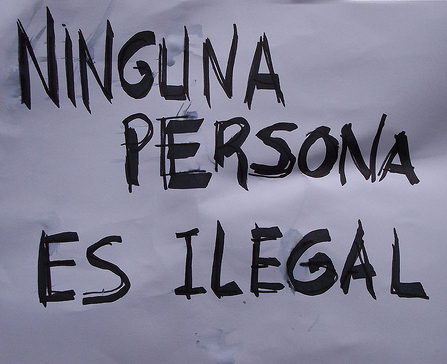 NINGUNA
PERSONA
ES ILEGAL